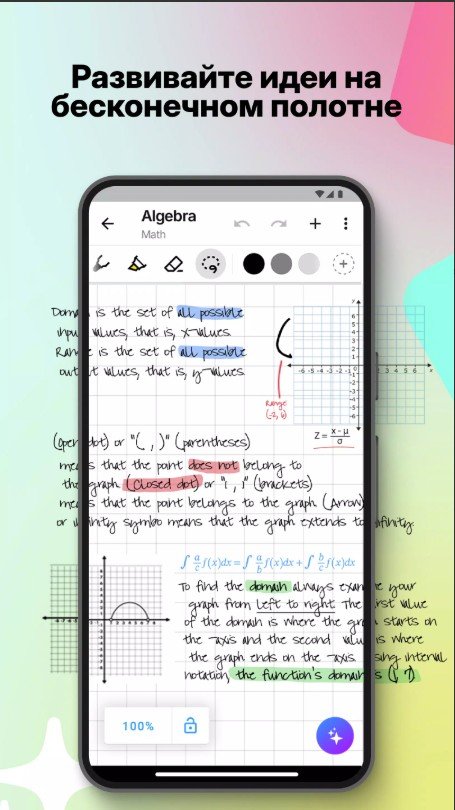 Развивайте идеи на
бесконечном полотне
Algebra
Math
Domain is the set of all possible
input values, that is, x-values
Range is the set of all possible
output values, that is, y-values
Range
(-2, 6)
Z = x - μ / σ
(Open dot) or "( , )" (parentheses)
means that the point does not belong to
the graph (Closed dot) or "[ , ]" (brackets)
means that the point belongs to the graph (Arrow)
or infinity symbo means that the graph extends to infinity
∫ a/c f(x)dx = ∫ a/b f(x)dx + ∫ b/c f(x)dx
To find the domain always examine your
graph from left to right The first value
of the domain is where the graph starts on
the -axis and the second value is where
the graph ends on the -axis. Using interval
notation, the function's domain is
100%